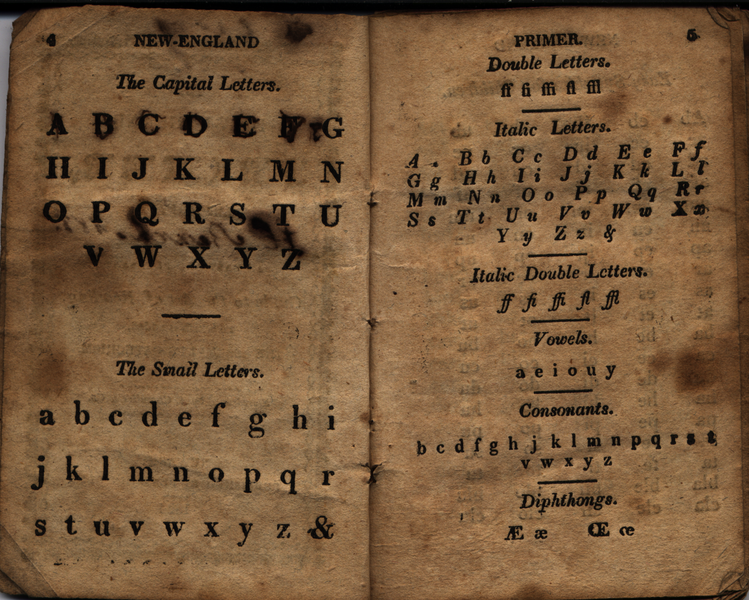 4 NEW-ENGLAND
The Capital Letters.
A B C D E F G
H I J K L M N
O P Q R S T U
V W X Y Z
The Small Letters.
a b c d e f g h i
j k l m n o p q r
s t u v w x y z &
PRIMER. 5
Double Letters.
ff fi ffi fl ffl
Italic Letters.
A . B b C c D d E e F f
G g H h I i J j K k L l
M m N n O o P p Q q R r
S s T t U u V v W w X x
Y y Z z &
Italic Double Letters.
ff fi ffi fl ffl
Vowels.
a e i o u y
Consonants.
b c d f g h j k l m n p q r s t
v w x y z
Diphthongs.
Æ æ Œ œ